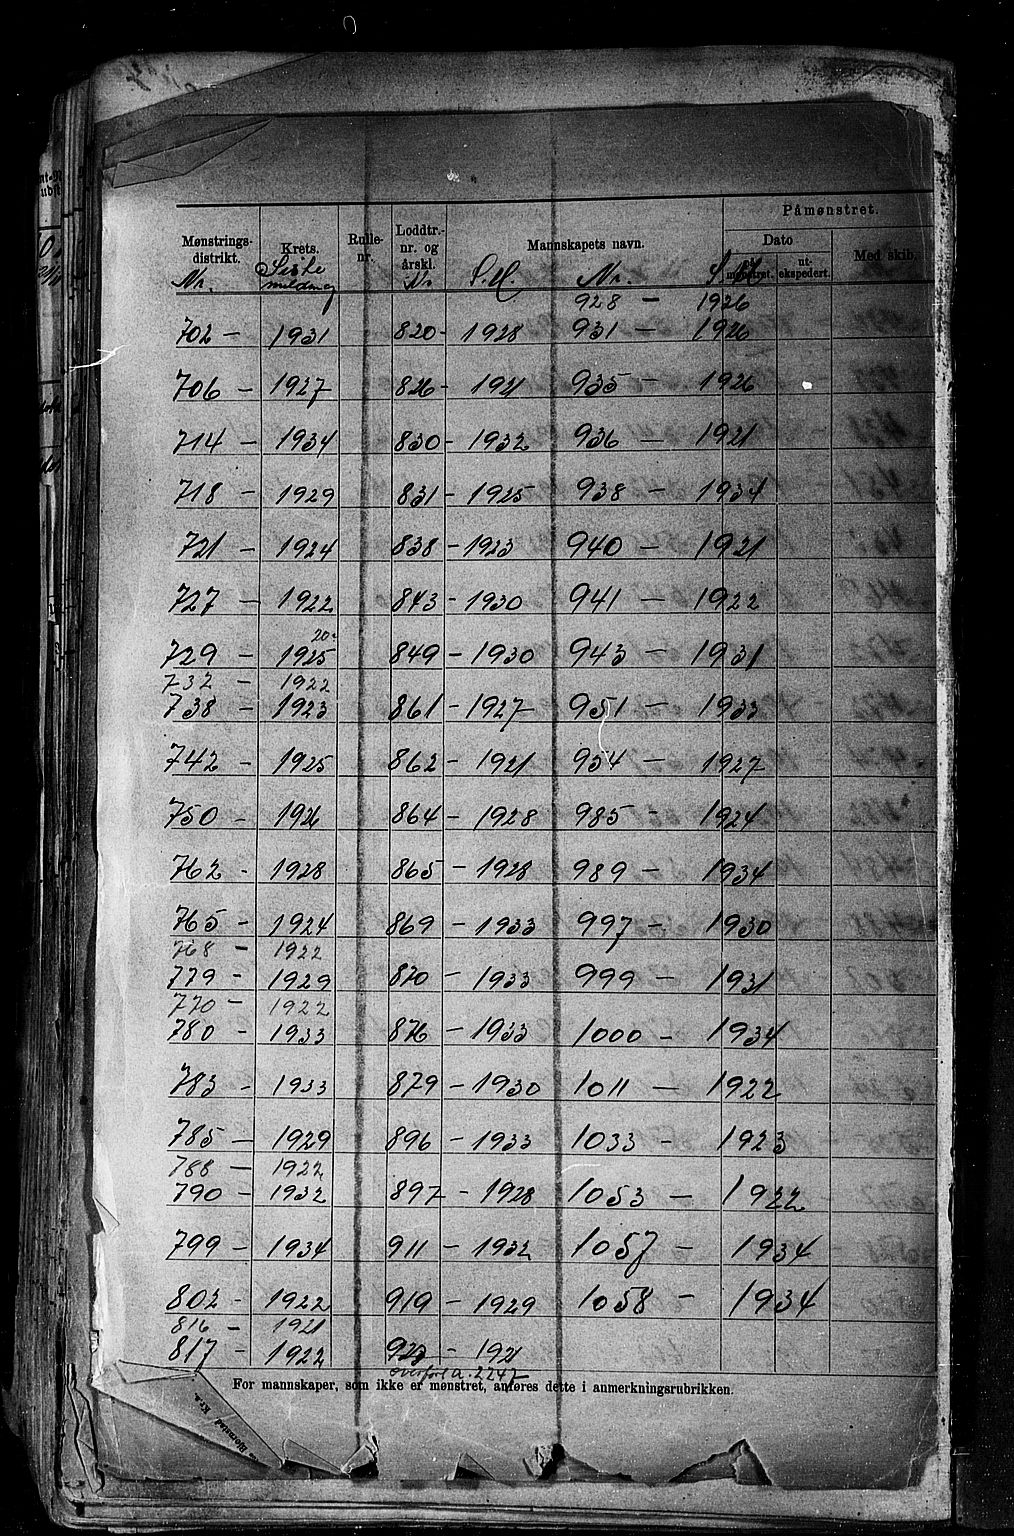 Påmønstret.
Mønstrings- distrikt. Krets. Rulle- nr. Loddtr.- nr. og årskl. Mannskapets navn. Dato Med skib.
mønstret. ut- ekspedert.
Nr. Siste melding Nr. S.M. Nr. S.M.
928 — 1926
702 — 1931 820 - 1928 931 — 1926
706 — 1927 826 - 1921 935 — 1926
714 — 1934 830 - 1932 936 — 1921
718 — 1929 831 - 1925 938 — 1934
721 — 1924 838 - 1923 940 — 1921
727 — 1922 843 - 1930 941 — 1922
20-
729 — 1925 849 - 1930 943 — 1931
732 — 1922
738 — 1923 861 - 1927 951 — 1933
742 - 1925 862 - 1921 954 — 1927
750 - 1926 864 - 1928 985 - 1924
762 - 1928 865 - 1928 989 — 1934
765 - 1924 869 - 1933 997 - 1930
768 — 1922
779 - 1929 870 - 1933 999 — 1931
770 — 1922
780 - 1933 876 - 1933 1000 - 1934
783 - 1933 879 - 1930 1011 — 1922
785 — 1929 896 - 1933 1033 - 1923
788 — 1922
790 - 1932 897 - 1928 1053 — 1922
799 - 1934 911 - 1932 1057 - 1934
802 - 1922 919 - 1929 1058 - 1934
816 — 1921
817 - 1922 923 - 1921
overført a. 2247
For mannskaper, som ikke er mønstret, anføres dette i anmerkningsrubrikken.